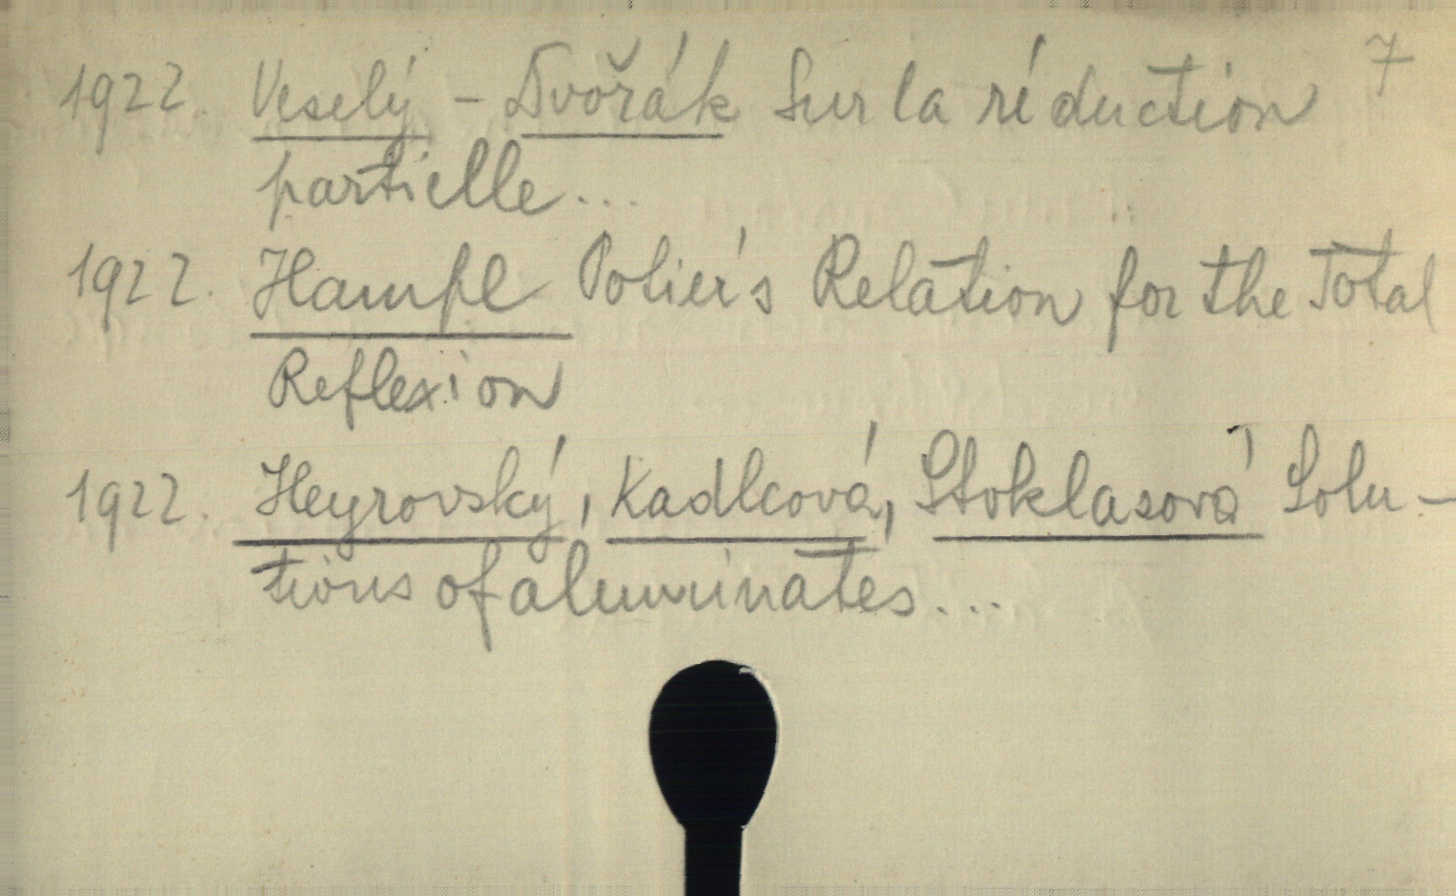 1922. Veselý - Dvořák Sur la réduction 7
partielle...
1922. Hampl Potier's Relation for the Total
Reflexion
1922. Heyrovský, Kadlcová, Stoklasová Solu-
tions of aluminates...